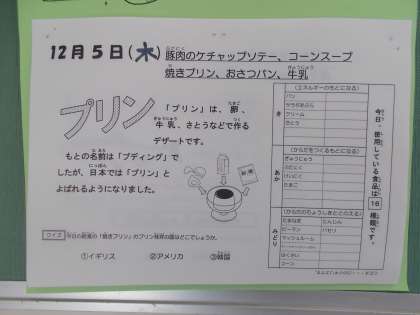 12月5日(木) 豚肉のケチャップソテー、コーンスープ
焼きプリン、おさつパン、牛乳
プリン
「プリン」は、卵、
牛乳、さとうなどで作る
デザートです。
もとの名前は「プディング」で
したが、日本では「プリン」と
よばれるようになりました。
クイズ 今日の給食の「焼きプリン」のプリン発祥の国はどこでしょうか。
①イギリス ②アメリカ ③韓国
今日、使用している食品は16種類です。
(エネルギーのもとになる)
き
パン
クリーム
さとう
(からだをつくるもとになる)
あか
ぎゅうにゅう
ぶたにく
たまご
(からだのちょうしをととのえる)
みどり
たまねぎ にんじん
ピーマン パセリ
マッシュルーム
コーン